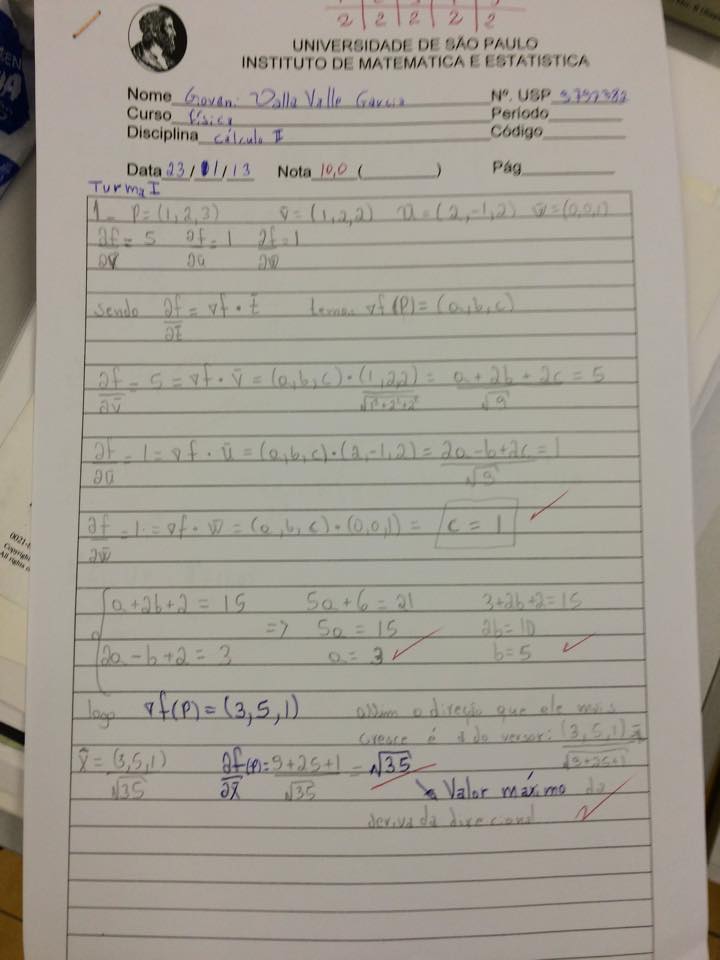 2 2 2 2 2
UNIVERSIDADE DE SÃO PAULO
INSTITUTO DE MATEMATICA E ESTATISTICA
Nome Giovani Dalla Valle Garcia Nº. USP
Curso física Período
Disciplina cálculo II Código
Data 23/01/13 Nota 10,0 ( ) Pág
Turma I
1- P=(1,2,3) v̄=(1,2,2) ū=(2,-1,2) w̄=(0,0,1)
∂f/∂v̄ = 5 ∂f/∂ū = 1 ∂f/∂w̄ = 1
sendo ∂f/∂t̄ = ∇f • t̄ temos ∇f(P) = (a,b,c)
∂f/∂v̄ = 5 = ∇f • v̄ = (a,b,c) • (1,2,2)/√(1²+2²+2²) = (a+2b+2c)/√9 = 5
∂f/∂ū = 1 = ∇f • ū = (a,b,c) • (2,-1,2) = (2a-b+2c)/√9 = 1
∂f/∂w̄ = 1 = ∇f • w̄ = (a,b,c) • (0,0,1) = c = 1
a+2b+2 = 15 5a+6 = 21 3+2b+2=15
=> 5a = 15 2b = 10
2a-b+2 = 3 a = 3 b = 5
logo ∇f(P) = (3,5,1) assim a direção que ele mais
cresce é a do versor: (3,5,1)/√(9+25+1) =
x̄ = (3,5,1)/√35 ∂f/∂x̄ (P) = (9+25+1)/√35 = √35
Valor máximo da
derivada direcional